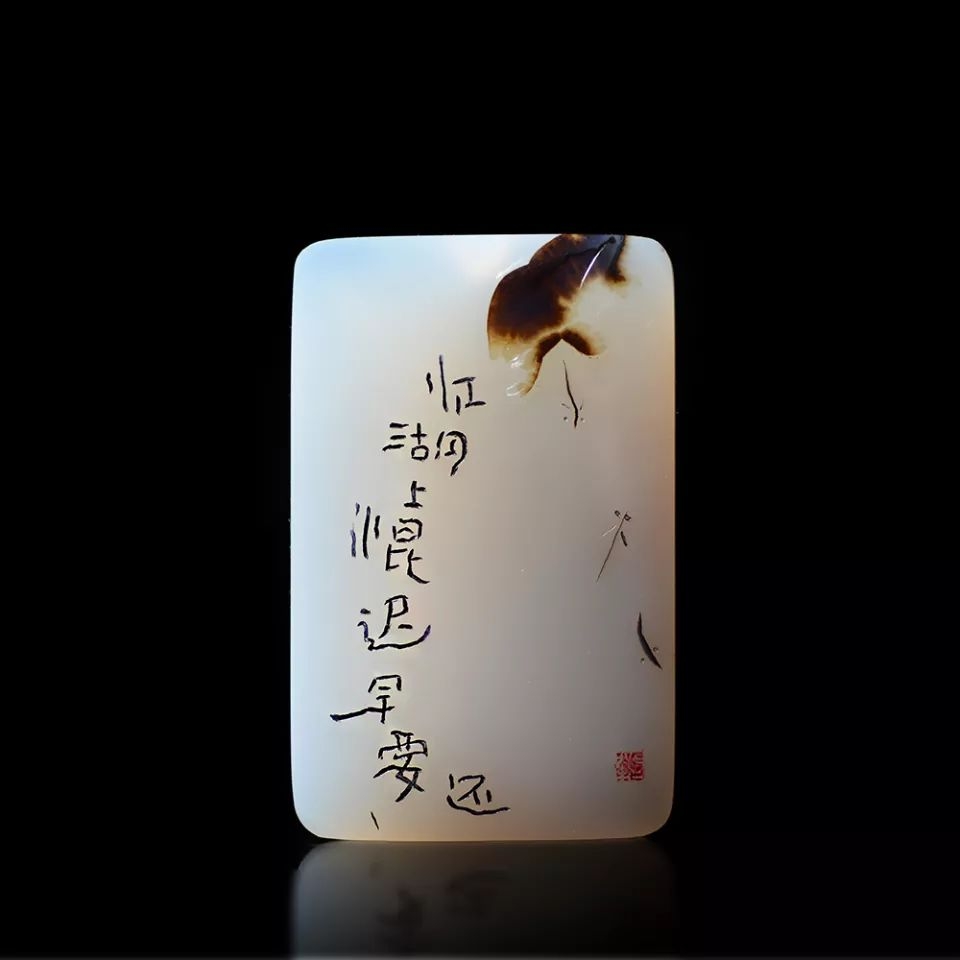 江湖上混迟早要还